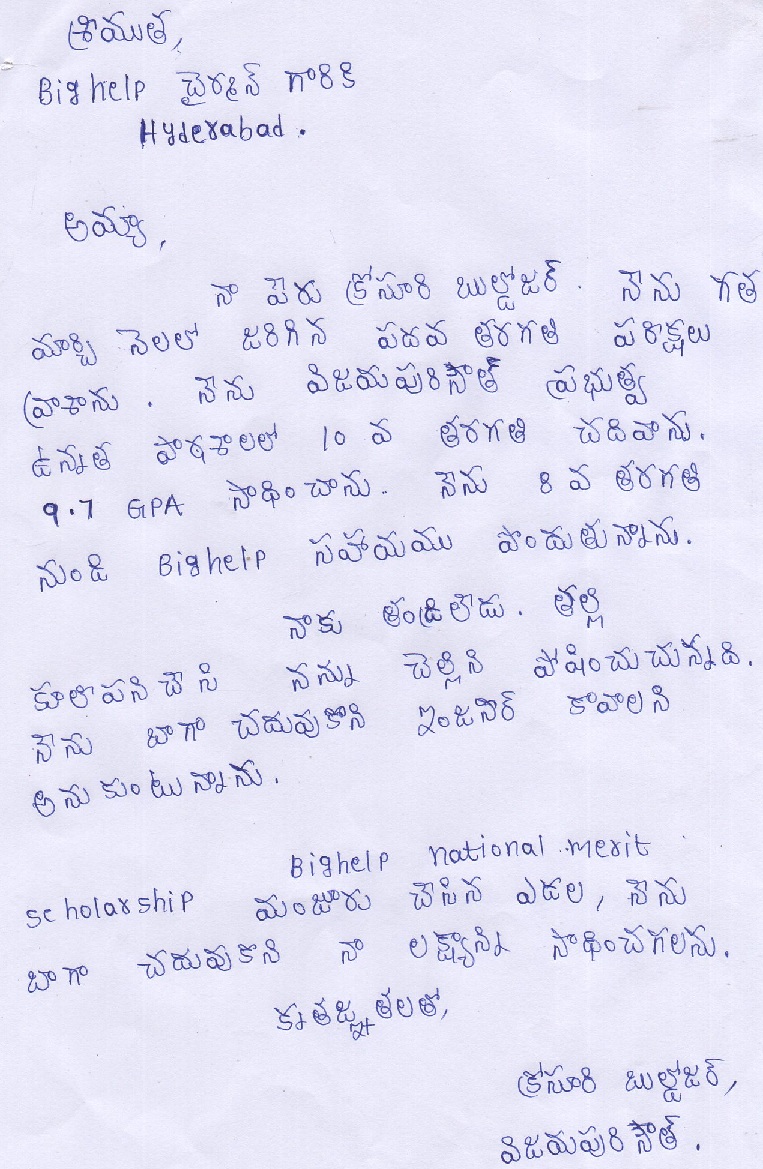 శ్రీయుత,
Bighelp చైర్మన్ గారికి
Hyderabad.
అయ్యా,
నా పేరు క్రోసూరి బుల్డోజర్. నేను గత
మార్చి నెలలో జరిగిన పదవ తరగతి పరీక్షలు
వ్రాశాను. నేను విజయపురిసౌత్ ప్రభుత్వ
ఉన్నత పాఠశాలలో 10 వ తరగతి చదివాను.
9.7 GPA సాధించాను. నేను 8 వ తరగతి
నుండి Bighelp సహాయము పొందుతున్నాను.
నాకు తండ్రిలేడు. తల్లి
కూలీపని చేసి నన్ను చెల్లిని పోషించుచున్నది.
నేను బాగా చదువుకొని ఇంజనీర్ కావాలని
అనుకుంటున్నాను.
Bighelp national merit
scholarship మంజూరు చేసిన ఎడల, నేను
బాగా చదువుకొని నా లక్ష్యాన్ని సాధించగలను.
కృతజ్ఞతలతో,
క్రోసూరి బుల్డోజర్,
విజయపురిసౌత్.